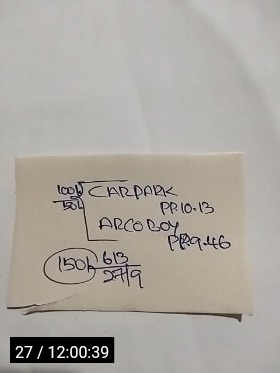 100h CARPARK
50h PP.10.13
ARCOBOY
PP.9.46
150h 613
27/9
27 / 12:00:39